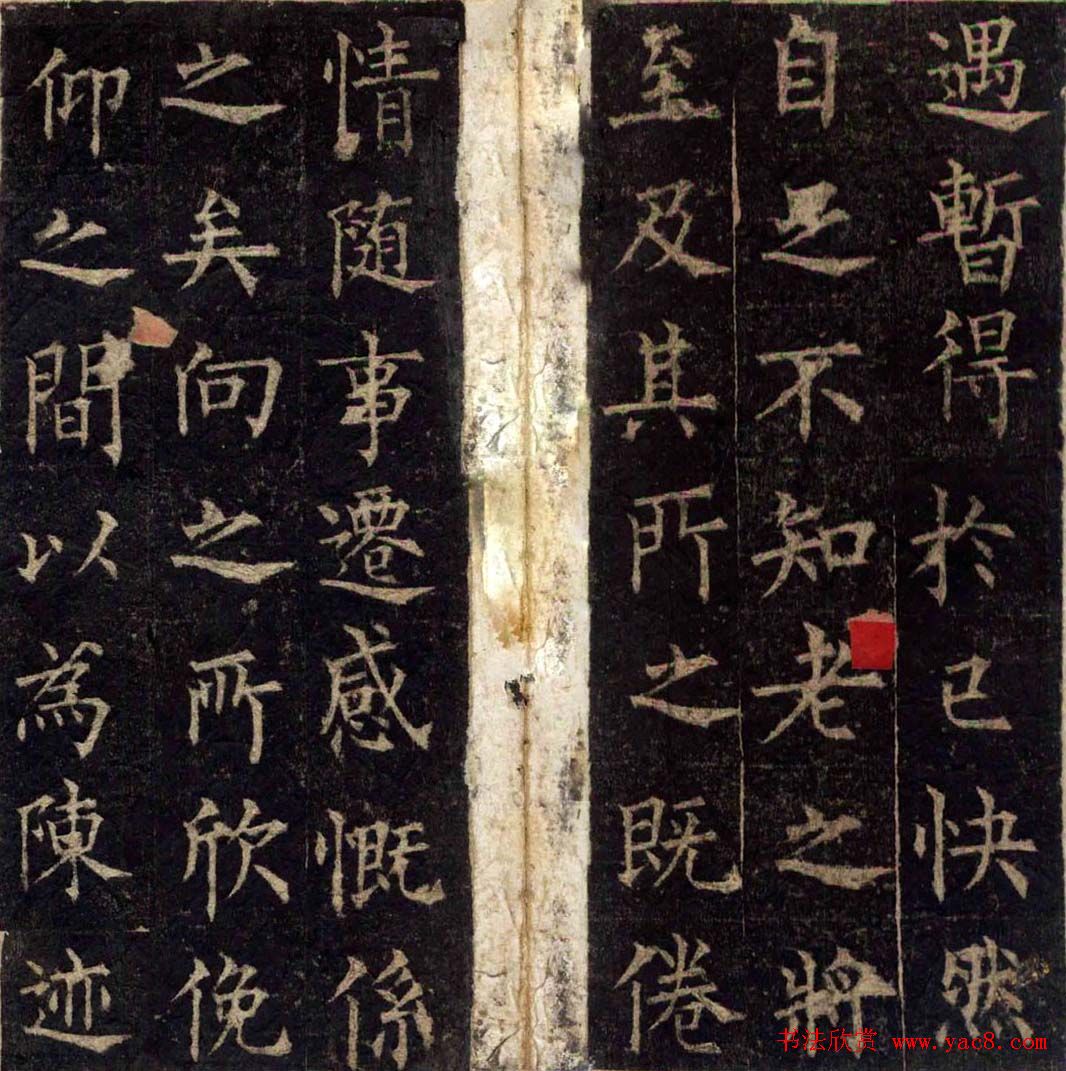 遇暫得於己快然
自足不知老之將
至及其所之既倦
情随事遷感慨係
之矣向之所欣俛
仰之間以為陳迹
书法欣赏 www.yac8.com